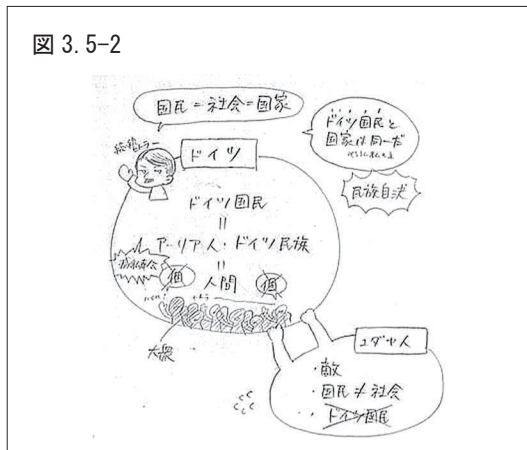 図 3.5-2
国民 = 社会 = 国家
ドイツ国民と
国家は同一だ
民族自決
ドイツ
ドイツ国民
=
アーリア人・ドイツ民族
=
人間
個
個
大衆
ユダヤ人
・敵
・国民 ≠ 社会
・ドイツ国民